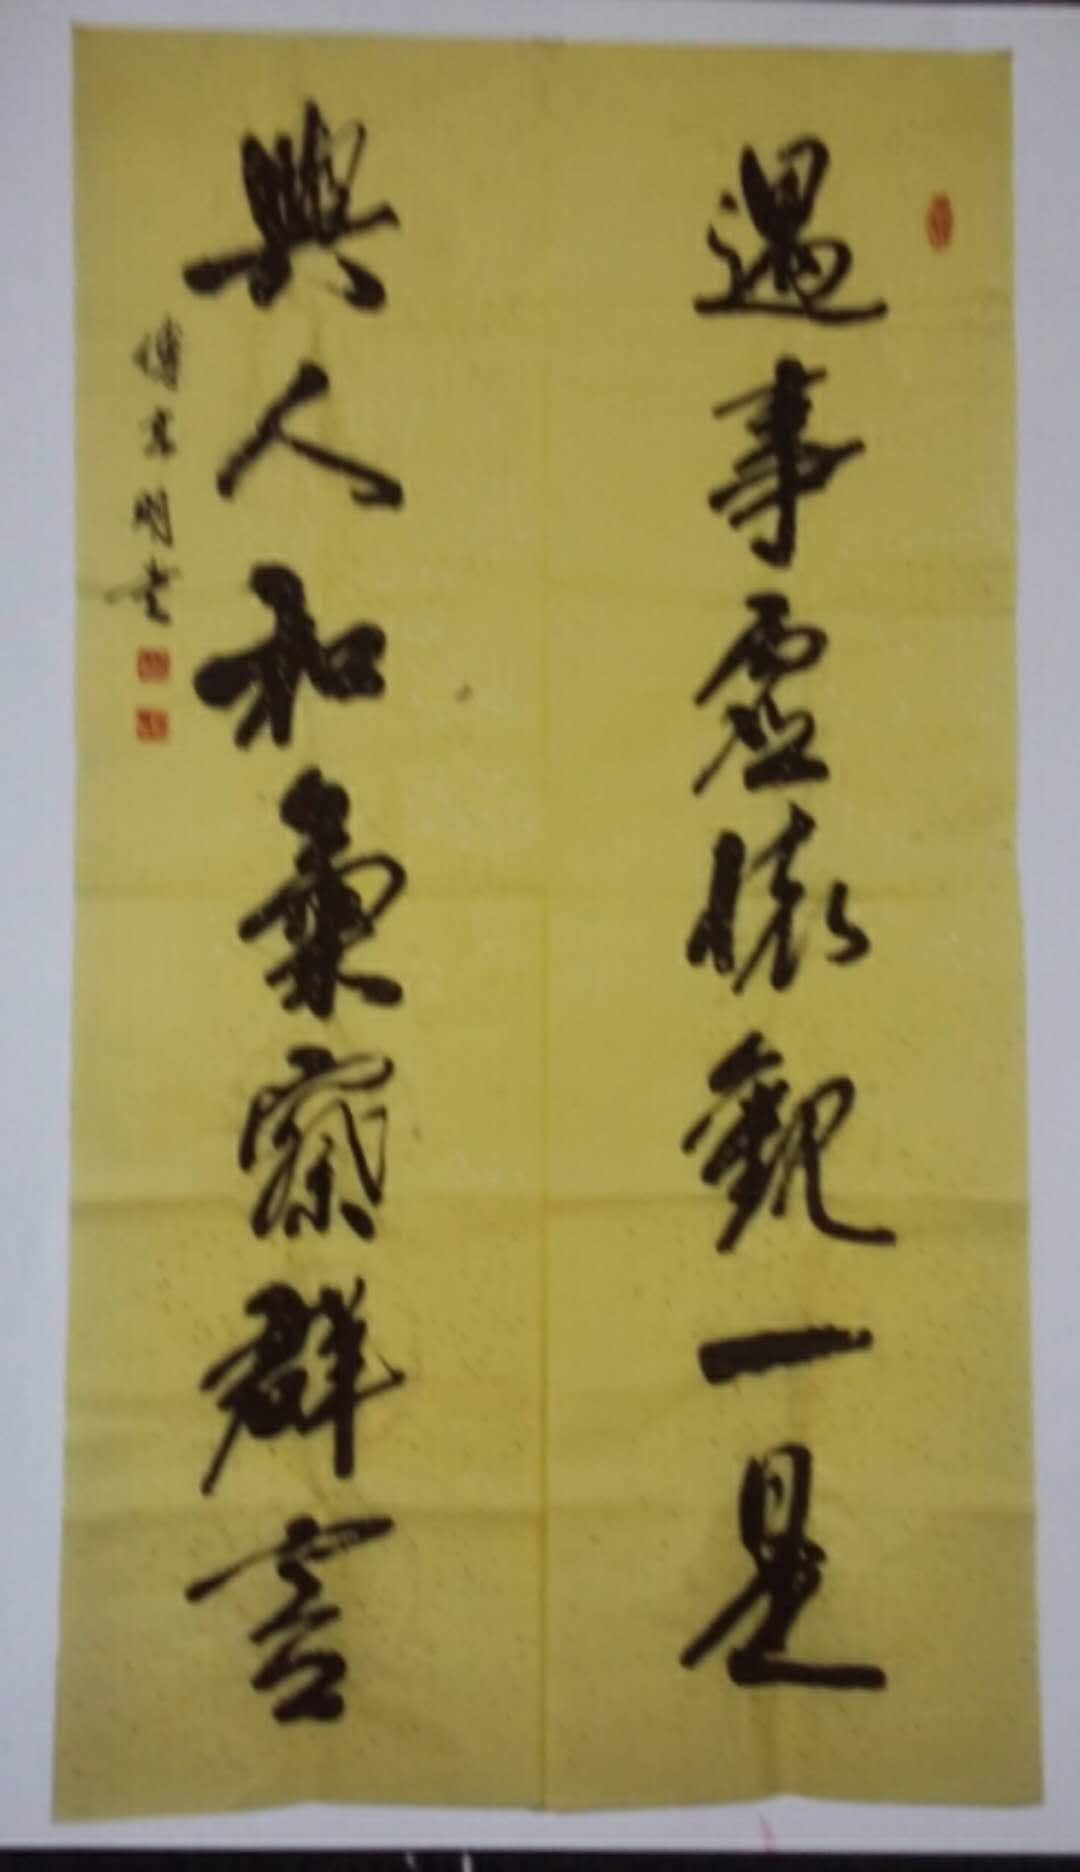 遇事虛懷觀一是
與人和氣察群言